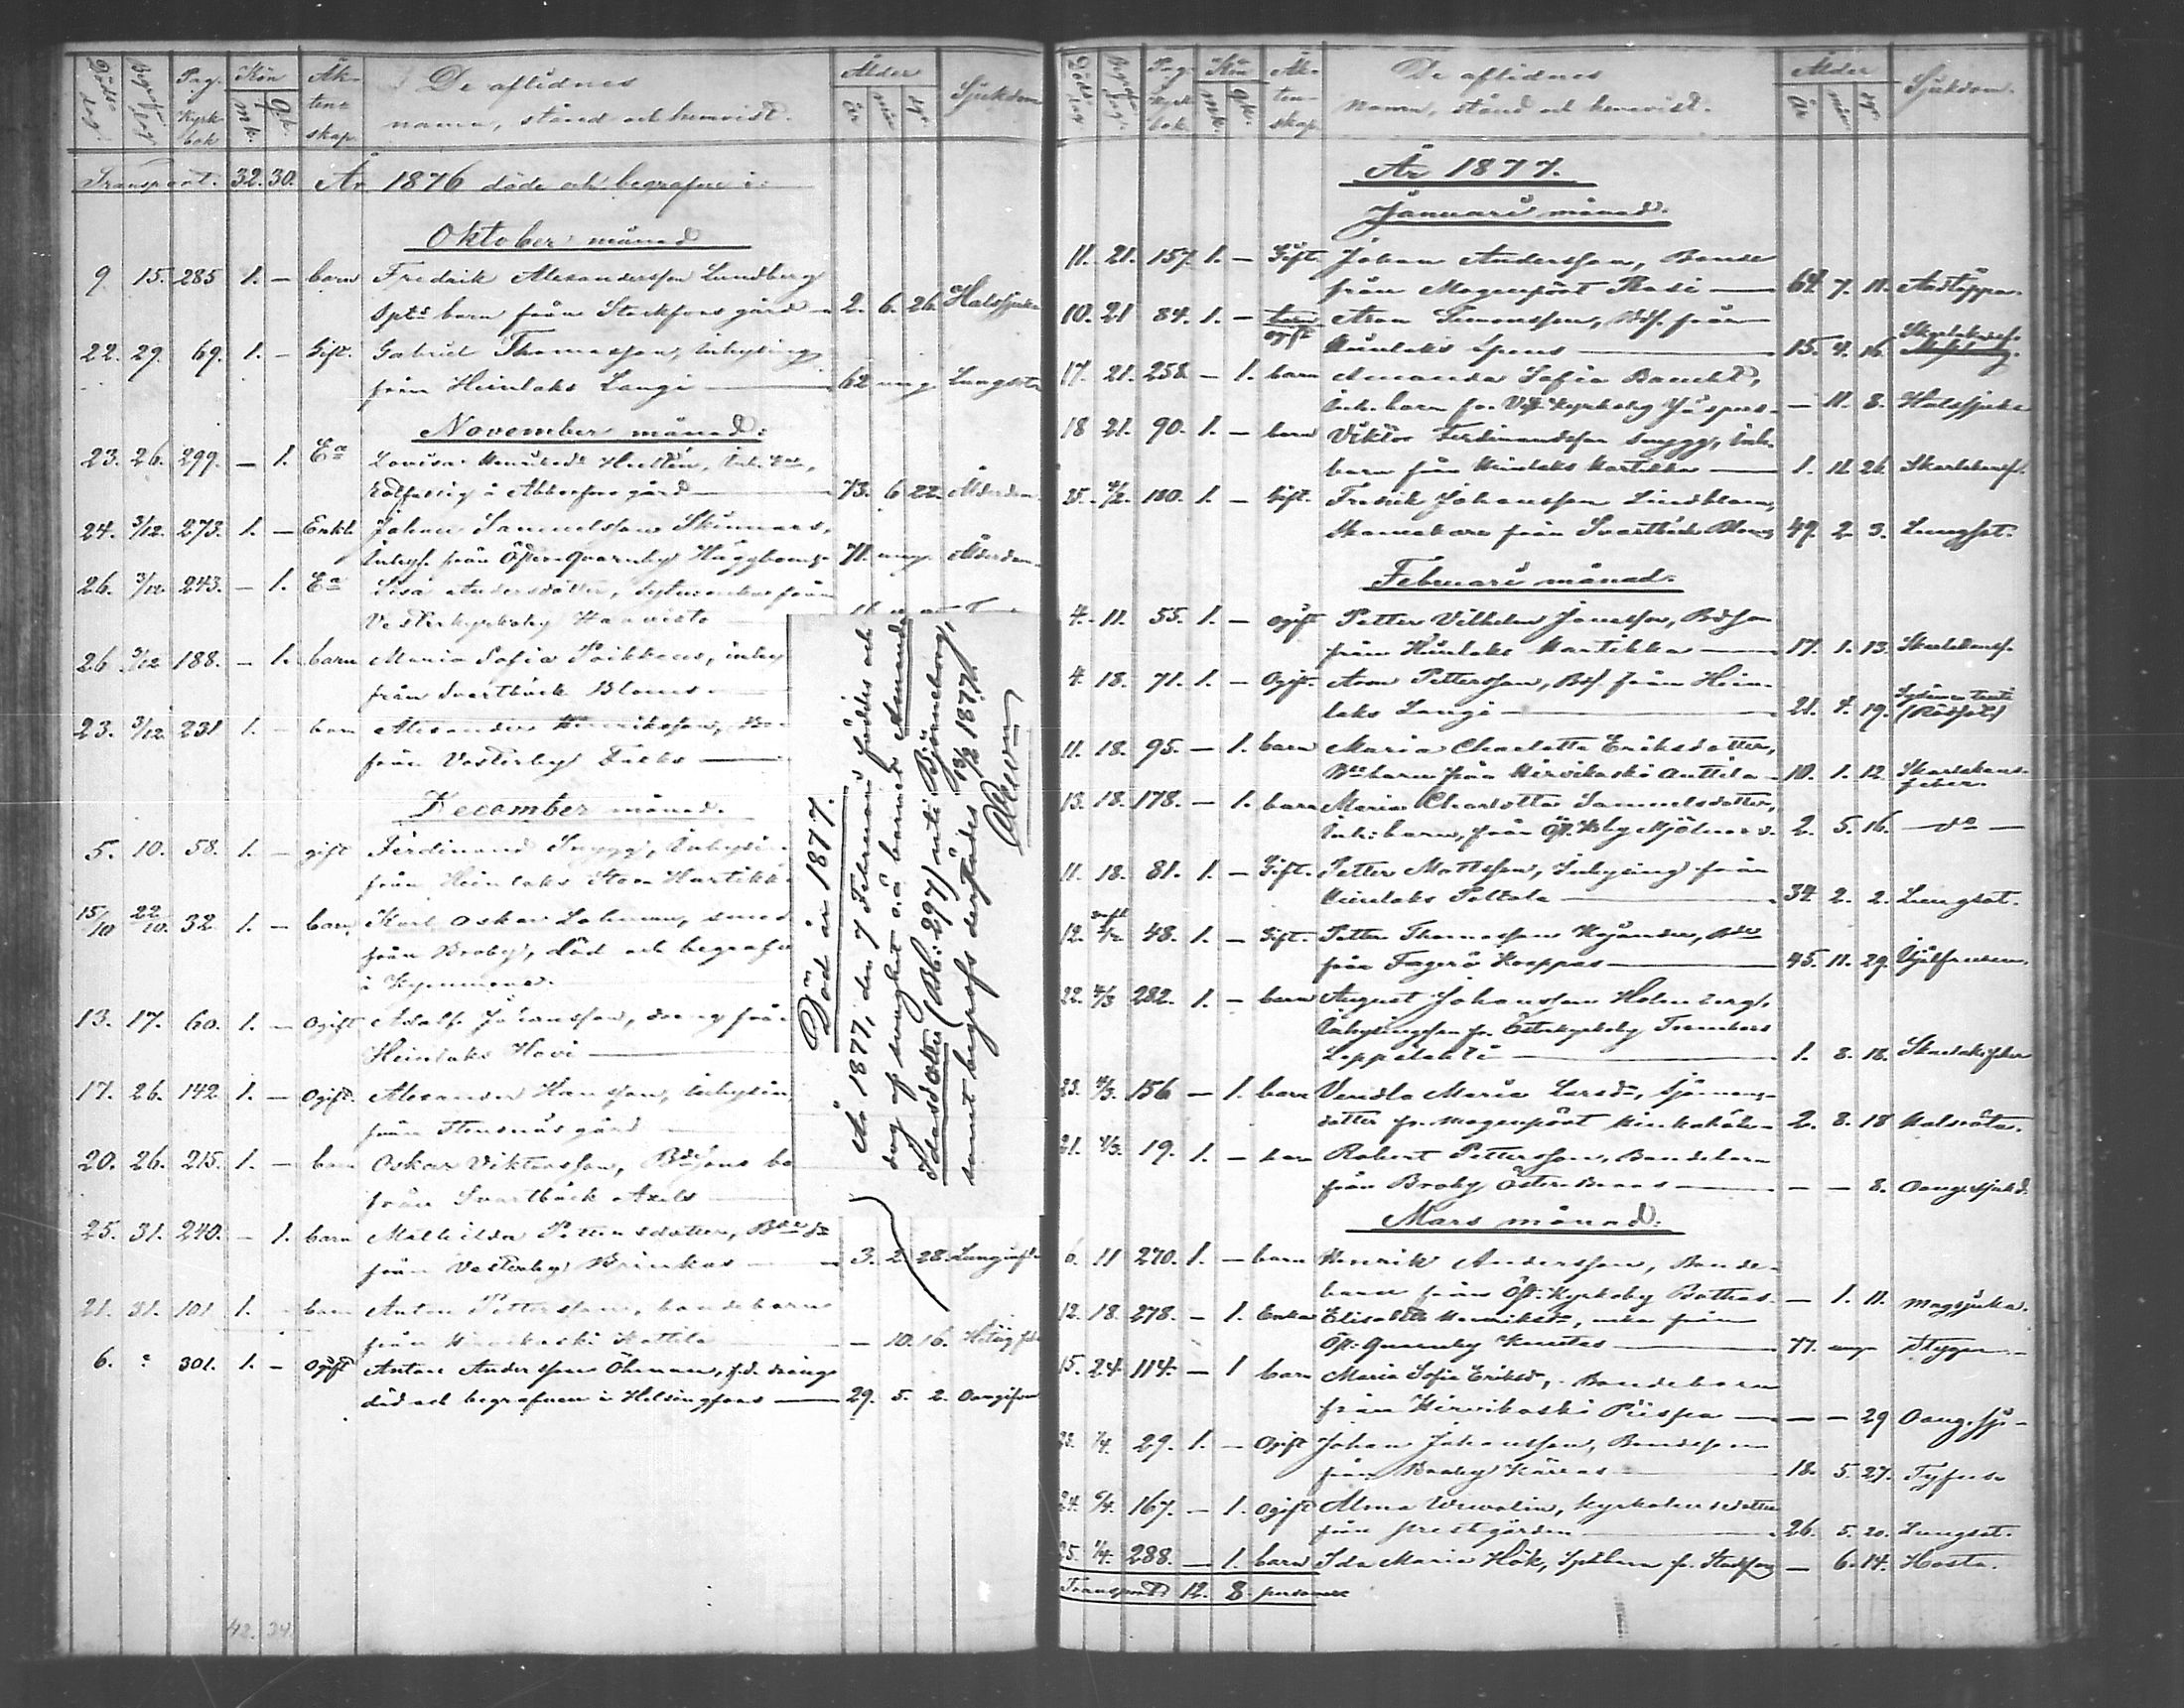 Döds dag. Begrafn. dag. Pag. Kyrk bok Kön mk. qk. Äktenskap. De aflidnes namn, stånd och hemvist. Ålder år mån dg. Sjukdom
Transport. 32. 30. År 1876 döde och begrafne i:
Oktober månad
9 15. 285 1. – barn Fredrik Alexandersson Lundberg
Spts barn från Stockfors gård 2. 6. 26. Halssjuka
22. 29. 69. 1. – Gift. Gabriel Thomasson, Inhysing
från Heinlaks Langi 62 Lungsot
November månad:
23. 26. 299. – 1. Ea Lovisa
fattig i Abborfors gård 73. 6 22 Ålderdom
24. 3/12. 273. 1. – Enkl. Johan Samuelsson Skinnars,
Inhys. från Öster-Qvarnby Häggboms 71. Ålderdom
26. 3/12. 243. – 1. Ea Lisa Andersdotter, från
Vesterkyrkoby Haavisto
26 3/12 188. – 1. barn Maria Sofia Päikkens, inhy
från Svartbäck Bloms
23. 3/12 231 1. – barn Alexander Henriksson,
från Vesterby Falks
December månad.
5. 10. 58. 1. – gift Ferdinand Snygg, Inhysi
från Heinlaks Stor Hartikk
15/10 22/10. 32 1. – barn Karl Oskar Lehman,
från Broby, död och begrafn
i Kymmene.
13. 17. 60. 1. – Ogift Adolf Johansson, dräng från
Heinlaks Hovi
17. 26. 142 1. – Ogift. Alexander Hansson, Inhysin
från Stensnäs gård
20. 26. 215. 1. – barn Oskar Viktorsson, Bdesons ba
från Svartbäck Axels
25. 31. 240. – 1. barn Mathilda Pettersdotter,
från Vesterby Brinkas 3. 2. 28. Lunginfl
21. 31. 101 1. – barn Anton Pettersson, bondebarn
från Hirvikoski Kattila – 10. 16. Hetsig feb
6. ? 301. 1. – Ogift Anton Andersson Öhman, f.d. dräng
död och begrafven i Helsingfors 29. 5. 2. Oangifven
42. 34.
Död år 1877.
År 1877, den 7 Februari föddes och
dog af svaghet o.ä. barnet Amanda
Idasdotter (Kb: 297) uti Björneborg,
samt begrofs derstädes 13/2 1877.
Döds dag Begrafn. dag. Pag. Kyrk bok Kön mk. qk. Äktenskap De aflidnes namn, stånd och hemvist. Ålder år mån dg. Sjukdom.
År 1877.
Januari månad.
11. 21. 157. 1. – Gift. Johan Andersson, Bonde
från Mogenpört Rasi 64. 7. 11. Andtäppa.
10. 21 84. 1. – barn ogift Aron Simonsson, Bds. från
Heinlaks Spens 15. 4. 16. Skarlakansf.
17. 21. 258 – 1. barn Amanda Sofia
Inh. barn fr. Vest. Kyrkoby Jäspers – 11. 8. Halssjuka
18 21. 90. 1. – barn Viktor Ferdinandsson Snygg, inh.
barn från Heinlaks Hartikka 1. 11. 26. Skarlakansf.
25. 4/2. 180. 1. – Gift. Fredrik Johansson Lindblom,
Skomakare från Svartbäck Bloms 49. 2. 3. Lungsot.
Februari månad.
4. 11. 55. 1. – ogift Petter Vilhelm Jonasson, Bdson
från Heinlaks Hartikka 17. 1. 13. Skarlakansf.
4. 18. 71. 1. – Ogift. Aron Pettersson, Bds. från Hein-
laks Langi 21. 4. 19. (Rödsot)
11. 18. 95. – 1. barn Maria Charlotta Eriksdotter,
Bdebarn från Hirvikoski Anttila 10. 1. 12 Skarlakans-
feber.
13. 18. 178. – 1. barn Maria Charlotta Samuelsdotter,
Inh: barn, från Öst. Kby Mjölnars 2. 5. 16. – do –
11. 18. 81. 1. – Gift. Petter Mattsson, Inhysing från
Heinlaks Peltola 34 2. 2. Lungsot.
12. 48. 1. – Gift. Petter Thomasson Kojander, Bde
från Fagerö Koeppas 45. 11. 29.
22. 4/3 282. 1. – barn August Johansson Holmberg,
Inhysingson fr. Österkyrkoby Trombers
Leppälahti 1. 8. 18. Skarlakfeber
23. 4/3. 156 – 1. barn Vendla Maria Larsd., Sjömans-
dotter fr. Mogenpört 2. 8. 18 Halsröta.
21. 4/3. 19. 1. – barn Robert Pettersson, Bondebarn
från Broby Österbraas – – 8. Oang. sjukd.
Mars månad:
6. 11 270. 1. – barn Henrik Andersson, Bonde-
barn från Öst. Kyrkoby Bottas – 1. 11. Magsjuka.
12. 18. 278. – 1. Enka Elisabeth Henriksd., enka från
Öst: Qvarnby Knutas 77. Stygn
15. 24. 114. – 1 barn Maria Sofia Eriksd., Bondebarn
från Hirvikoski Piispa – – 29 Oang. sj.
23. 1/4. 29. 1. – Ogift Johan Johansson, Bondeson
från Broby Kärras 18. 5. 27. Tyfus
24. 6/4. 167. – 1. Ogift Alma Wirvolin, Kyrkoherdedotter
från prestgården 26. 5. 20. Lungsot.
25. 1/4. 288. – 1. barn Ida Maria Hök, Sptsbarn fr. Stockfors – 6. 14. Hosta.
Transport 12. 8. personer